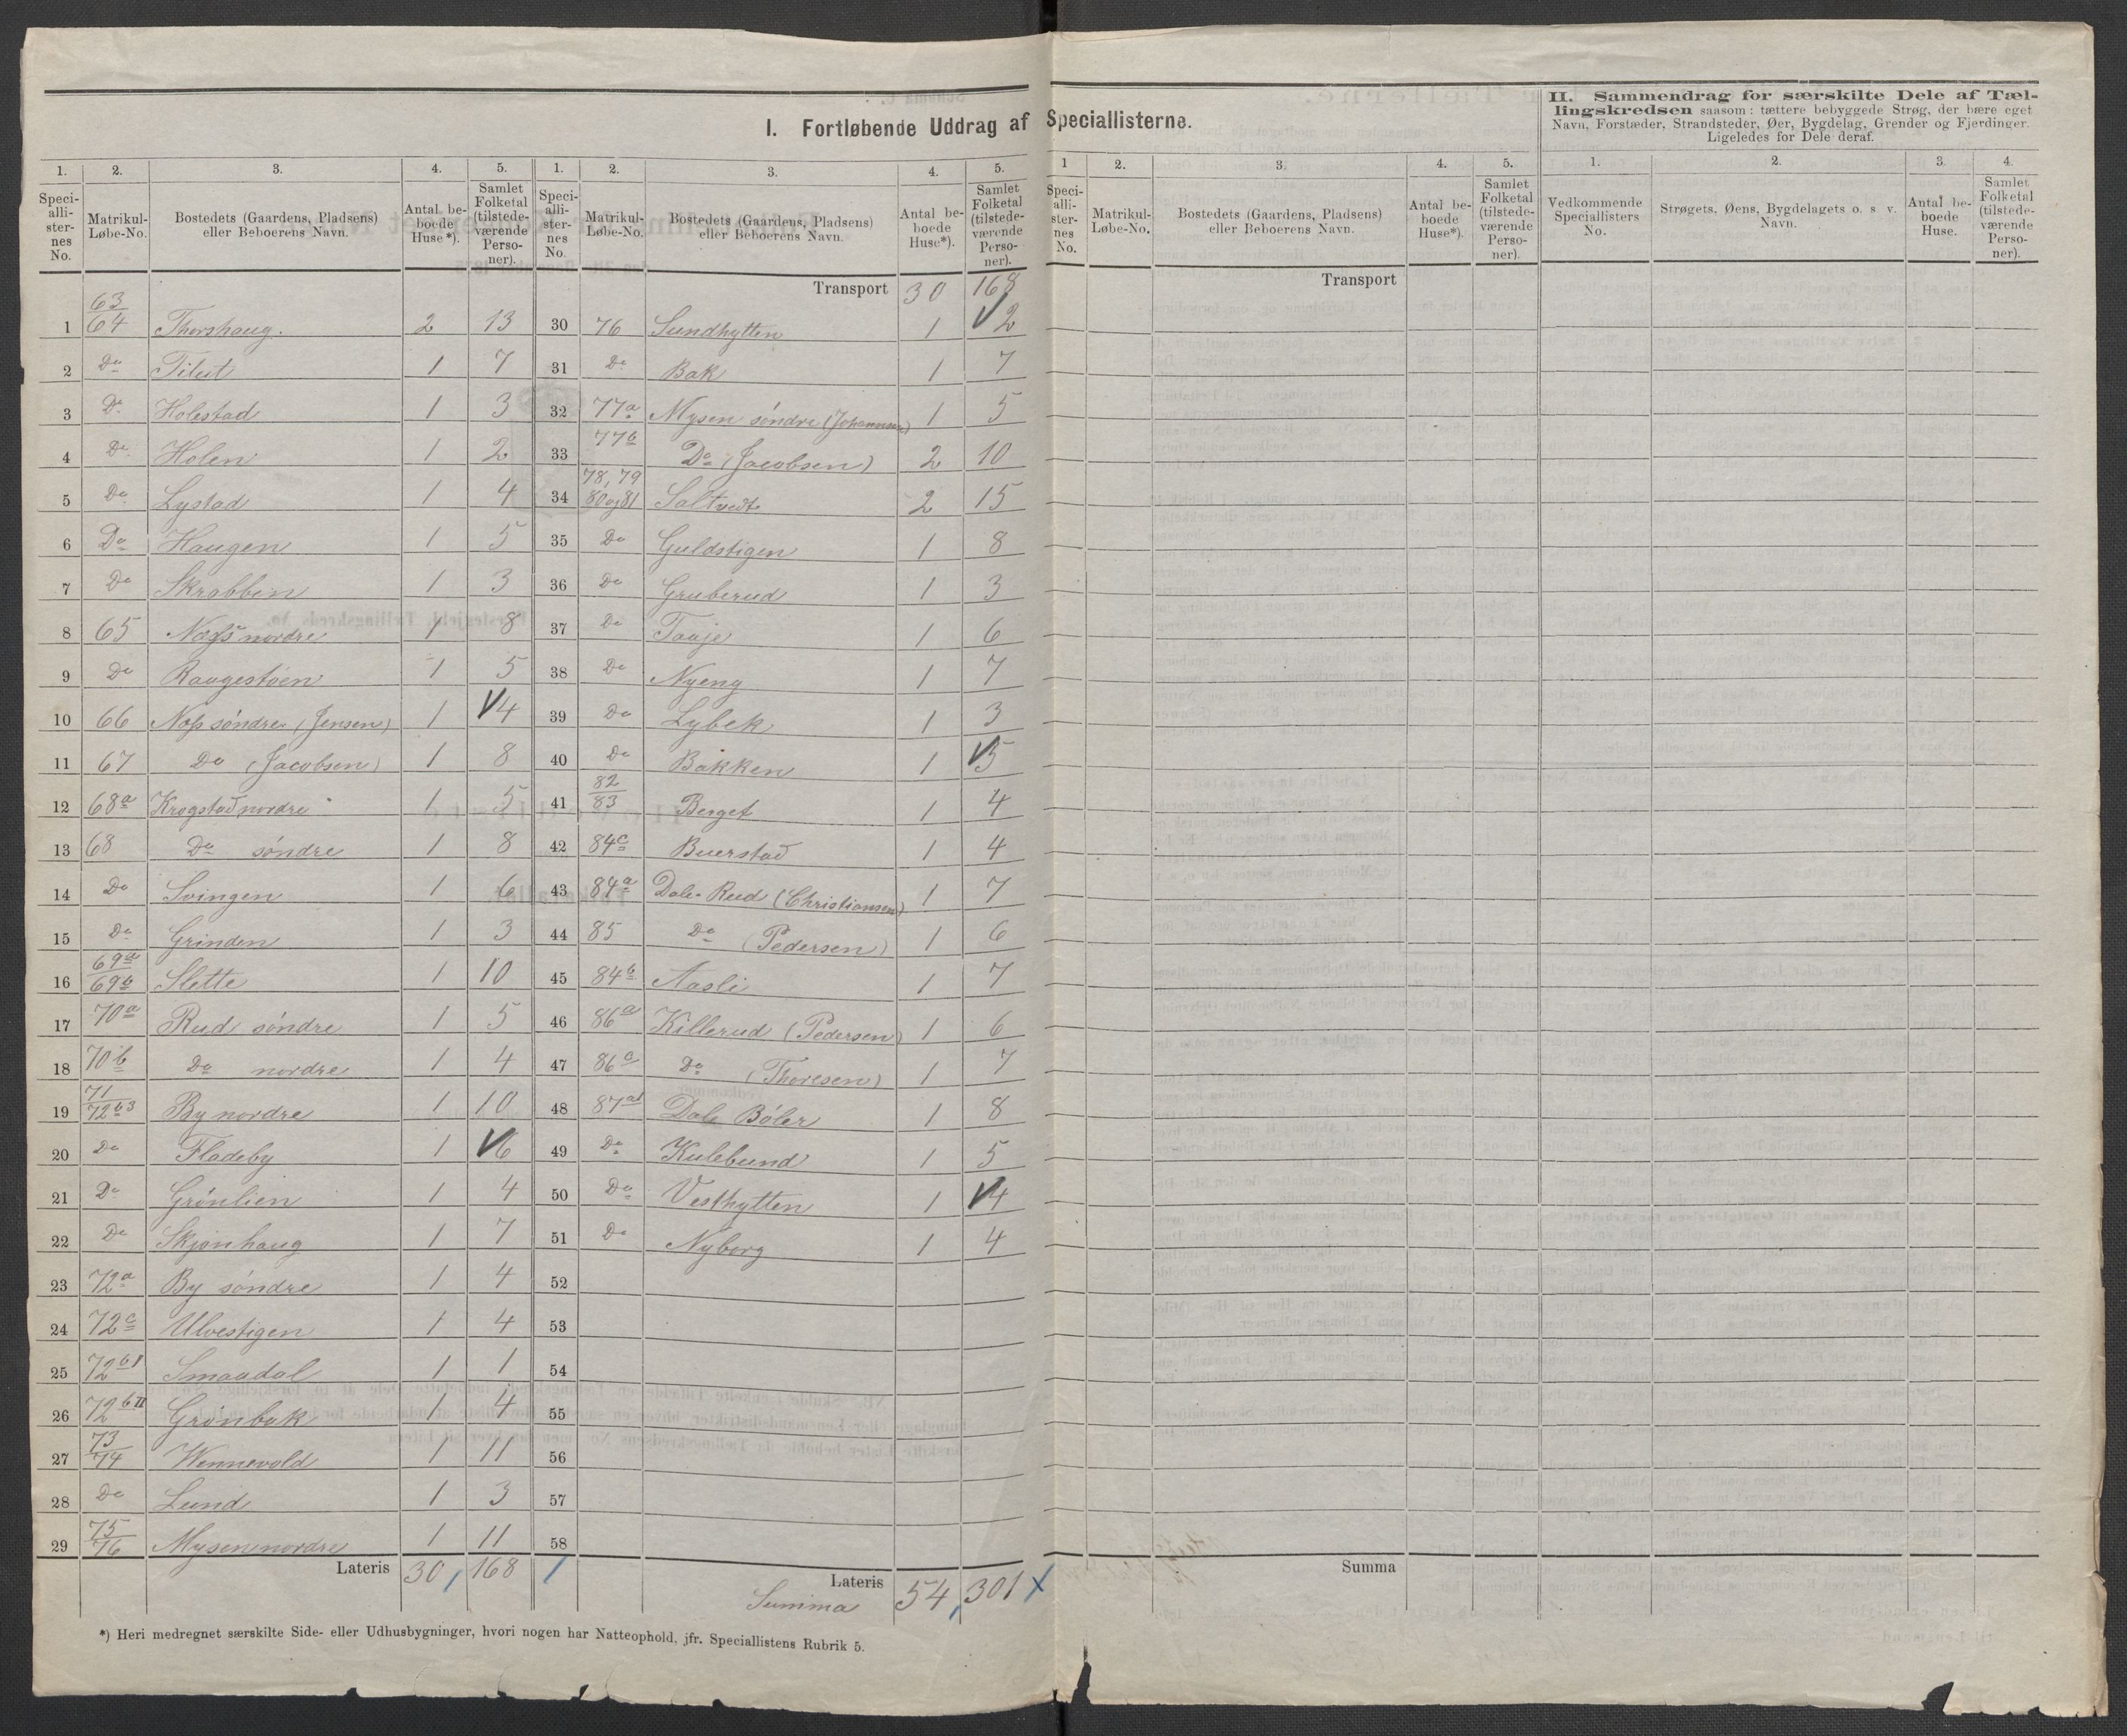 I. Fortløbende Uddrag af Speciallisterne.
1. 2. 3. 4. 5. 1. 2. 3. 4. 5.
Speciallisternes No. Matrikul-Løbe-No. Bostedets (Gaardens, Pladsens) eller Beboerens Navn. Antal beboede Huse*). Samlet Folketal (tilstedeværende Personer).
1 63/64 Thorshaug. 2 13
2 Do Tilut 1 7
3 Do Holestad 1 3
4 Do Holen 1 2
5 Do Lystad 1 4
6 Do Haugen 1 5
7 Do Skrabben 1 3
8 65 Næss nordre 1 8
9 Do Raugestøen 1 5
10 66 Næs søndre (Jensen) 1 4
11 67 Do (Jacobsen) 1 8
12 68a Krogstad nordre 1 5
13 68 Do søndre 1 8
14 Do Svingen 1 6
15 Do Grinden 1 3
16 69a/69b Slette 1 10
17 70a Rud søndre 1 5
18 70b Do nordre 1 4
19 71/72b3 By nordre 1 10
20 Do Fladeby 1 6
21 Do Grønlien 1 4
22 Do Skjønhaug 1 7
23 72a By søndre 1 4
24 72c Ulvestigen 1 4
25 72bI Smaadal 1 1
26 72bII Grønbak 1 4
27 73/74 Wennevold 1 11
28 Do Lund 1 3
29 75/76 Mysen nordre 1 11
Lateris 30, 168
Speciallisternes No. Matrikul-Løbe-No. Bostedets (Gaardens, Pladsens) eller Beboerens Navn. Antal beboede Huse*). Samlet Folketal (tilstedeværende Personer).
Transport 30 168
30 76 Sundhytten 1 2
31 Do Bak 1 7
32 77a Mysen søndre (Johannsen) 1 5
33 77b Do (Jacobsen) 2 10
34 78, 79 80 og 81 Saltvedt 2 15
35 Do Guldstigen 1 8
36 Do Gruberud 1 3
37 Do Taaje 1 6
38 Do Nyeng 1 7
39 Do Lybek 1 3
40 Do Bakken 1 5
41 82/83 Berget 1 4
42 84c Buerstad 1 4
43 84a Dale-Rud (Christiansen) 1 7
44 85 Do (Pedersen) 1 6
45 84b Aasli 1 7
46 86a Killerud (Pedersen) 1 6
47 86c Do (Thoresen) 1 7
48 87a1 Dale Bøler 1 8
49 Do Kulebund 1 5
50 Do Vesthytten 1 4
51 Do Nyborg 1 4
52
53
54
55
56
57
58
Lateris
Summa 54, 301
*) Heri medregnet særskilte Side- eller Udhusbygninger, hvori nogen har Natteophold, jfr. Speciallistens Rubrik 5.
1 2. 3. 4. 5.
Speciallisternes No. Matrikul-Løbe-No. Bostedets (Gaardens, Pladsens) eller Beboerens Navn. Antal beboede Huse*). Samlet Folketal (tilstedeværende Personer).
Transport
Summa
II. Sammendrag for særskilte Dele af Tællingskredsen saasom: tættere bebyggede Strøg, der bære eget
Navn, Forstæder, Strandsteder, Øer, Bygdelag, Grender og Fjerdinger.
Ligeledes for Dele deraf.
1. 2. 3. 4.
Vedkommende Speciallisters No. Strøgets, Øens, Bygdelagets o. s v. Navn. Antal beboede Huse. Samlet Folketal (tilstedeværende Personer).